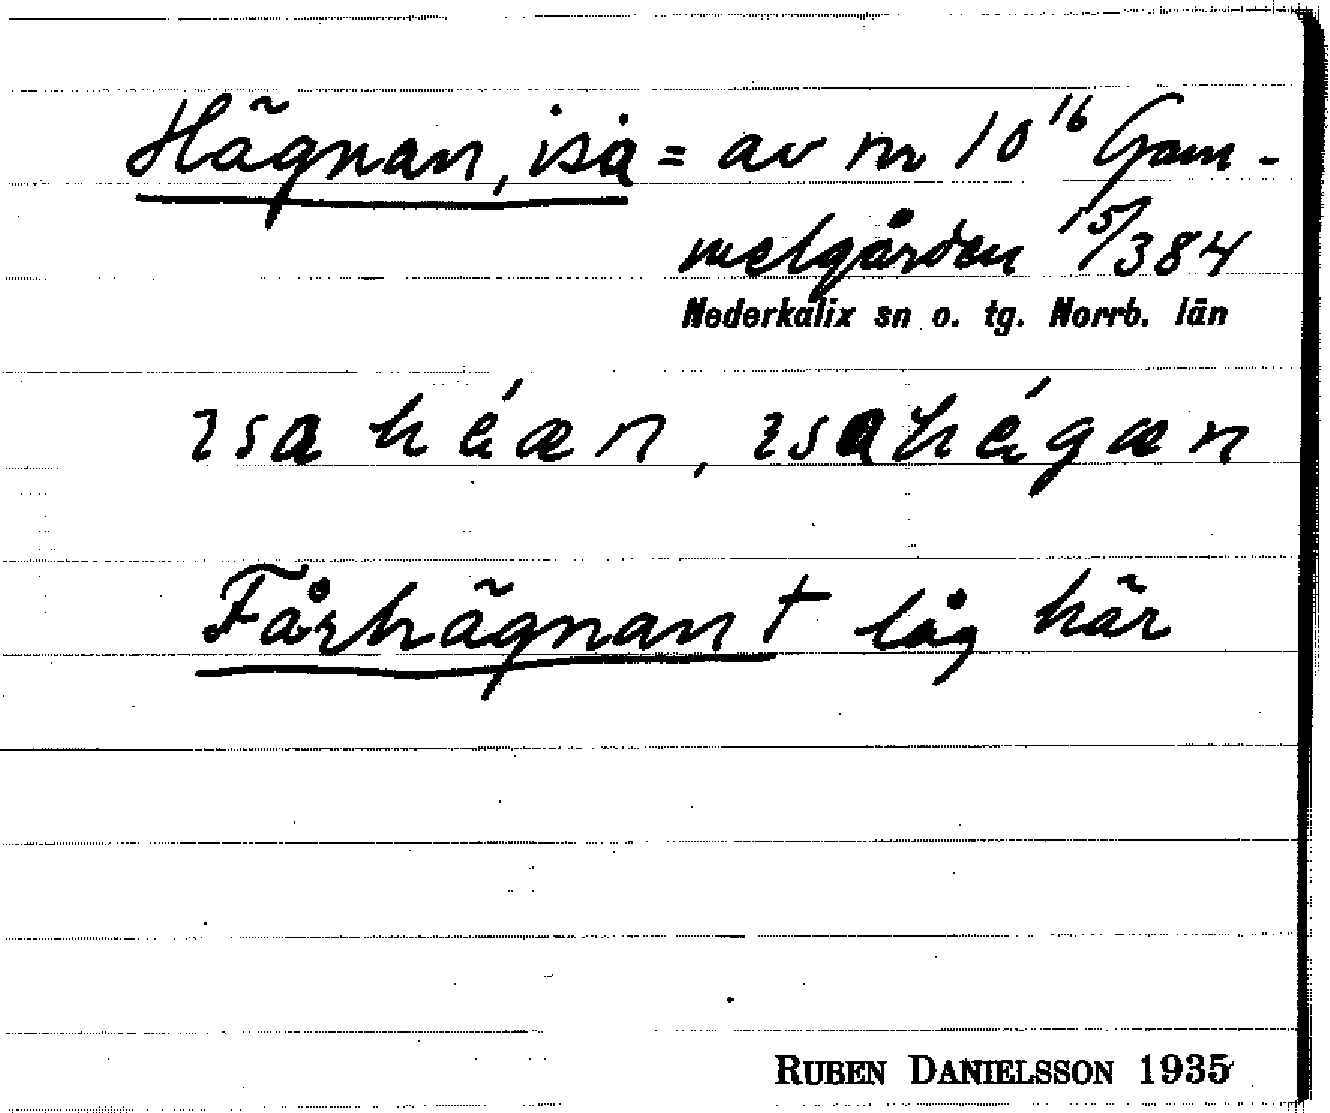 Hägnan, isa = av nr 10¹⁶ Gam-
melgården 15/384
Nederkalix sn o. tg. Norrb. län
ısa héæn, ısahégæn
Fårhägnan † låg här
RUBEN DANIELSSON 1935